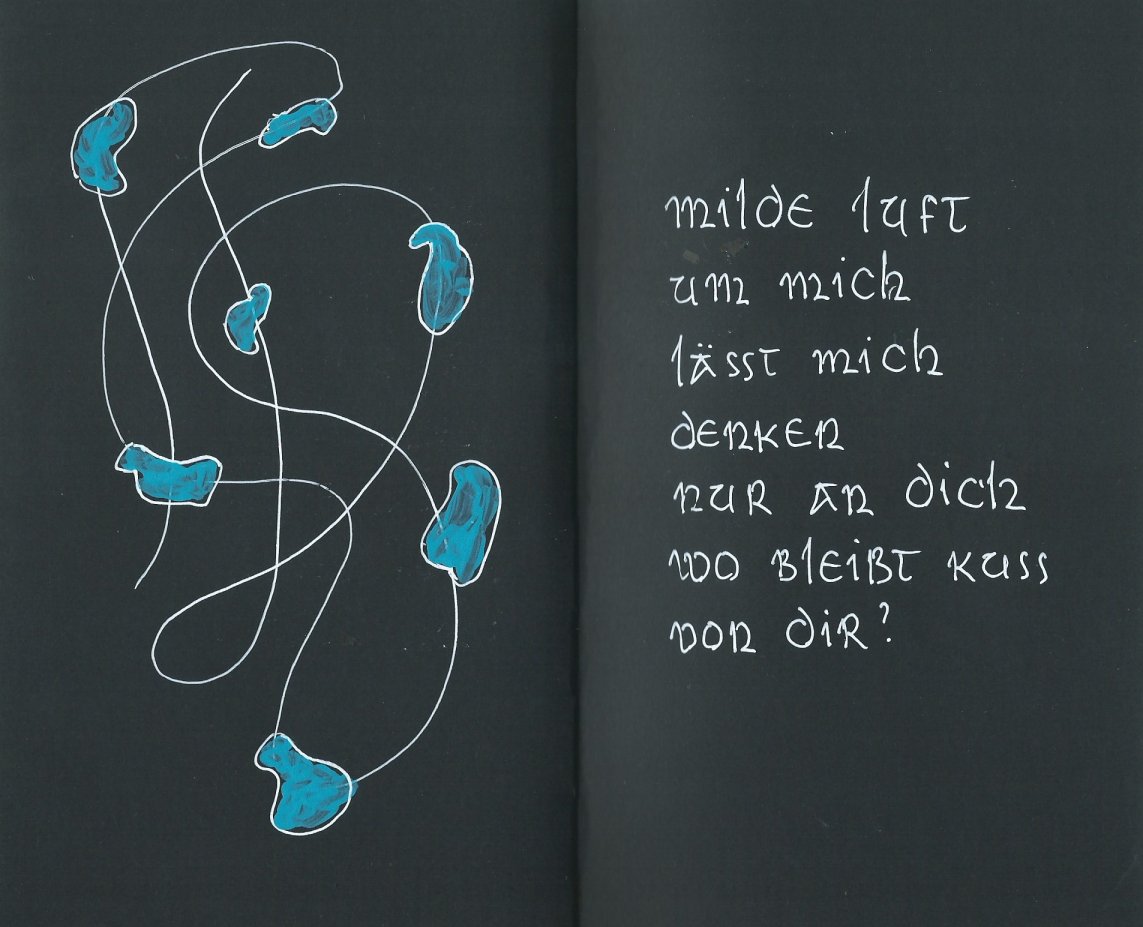 milde luft
um mich
lässt mich
denken
nur an dich
wo bleißt kuss
von dir?